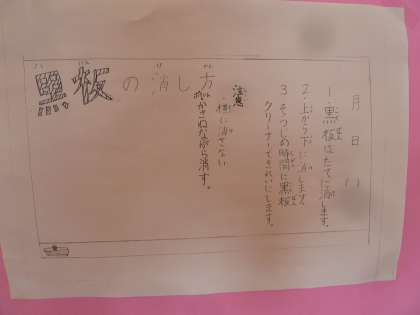 黒板の消し方
月 日 ( )
1 黒板はたてに消します。
2 上から下に消します
3 そうじの時間に黒板
クリーナーできれいにします。
注意
・横に消さない
・かさねながら消す。